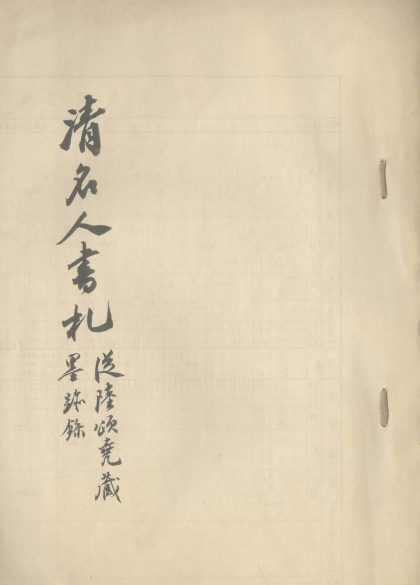 清名人書札
從陸頌堯藏
墨跡錄